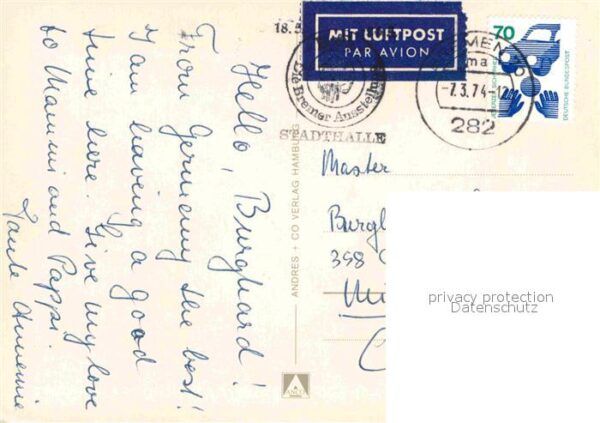 Hello, Burghard!
From Germany the best!
I am having a good
time here. Give my love
to Mammi and Pappi.
Tante Annemie
18.5
MIT LUFTPOST
PAR AVION
Die Bremer Ausstellung
STADTHALLE
-7.3.74-12
282
70
DEUTSCHE BUNDESPOST
ANDRES + CO VERLAG HAMBURG
ANCO
Master
Burgh
398
privacy protection
Datenschutz